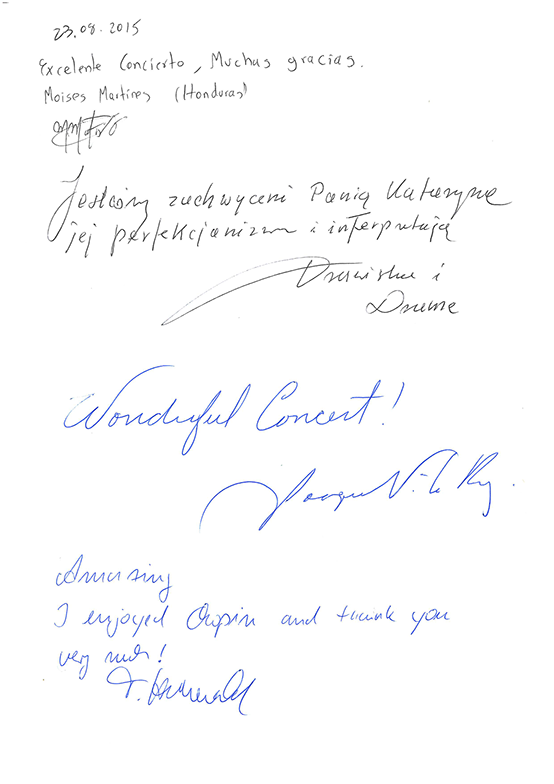 23.08.2015
Excelente Concierto, Muchas gracias.
Moises Martinez (Honduras)
Jesteśmy zachwyceni Panią Katarzyną
jej perfekcjonizm i interpretają
i
Wonderful Concert!
Amazing
I enjoyed Chopin and thank you
very much!